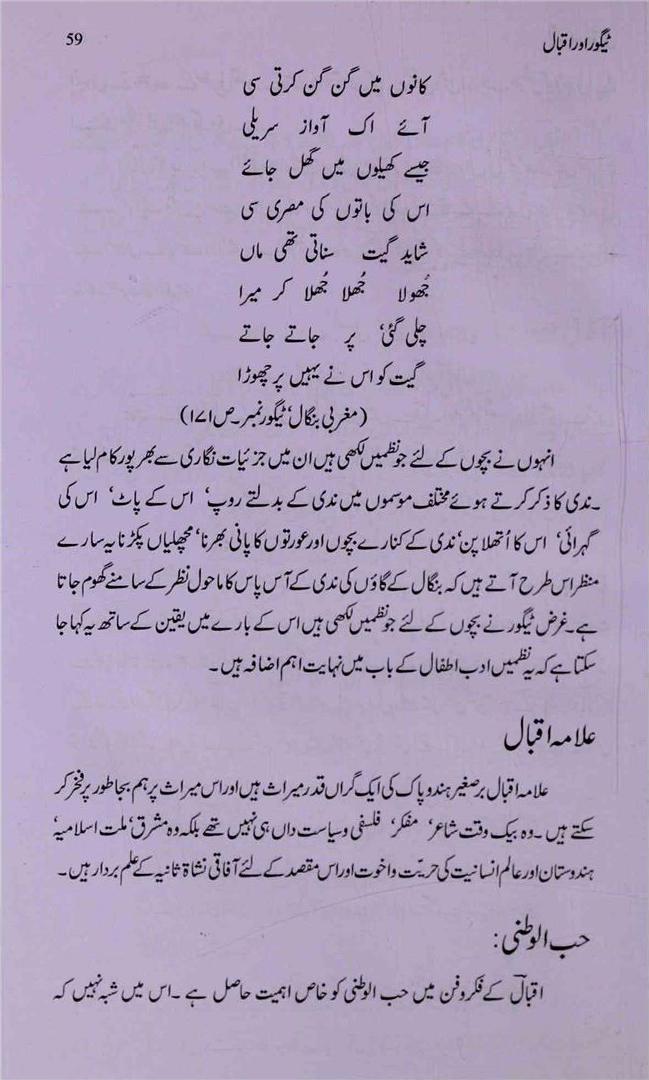 ٹیگور اور اقبال 59
کانوں میں گن گن کرتی سی
آئے اک آواز سریلی
جیسے کھیلوں میں گھل جائے
اس کی باتوں کی مصری سی
شاید گیت سناتی تھی ماں
جُھولا جُھلا جُھلا کر میرا
چلی گئی، پر جاتے جاتے
گیت کو اس نے یہیں پر چھوڑا
(مغربی بنگال، ٹیگور نمبر۔ ص ۱۷۱)
انہوں نے بچوں کے لئے جو نظمیں لکھی ہیں ان میں جزئیات نگاری سے بھرپور کام لیا ہے
۔ندی کا ذکر کرتے ہوئے مختلف موسموں میں ندی کے بدلتے روپ، اس کے پاٹ، اس کی
گہرائی، اس کا اُتھلا پن، ندی کے کنارے بچوں اور عورتوں کا پانی بھرنا، مچھلیاں پکڑنا یہ سارے
منظر اس طرح آتے ہیں کہ بنگال کے گاؤں کی ندی کے آس پاس کا ماحول نظر کے سامنے گھوم جاتا
ہے۔ غرض ٹیگور نے بچوں کے لئے جو نظمیں لکھی ہیں اس کے بارے میں یقین کے ساتھ یہ کہا جا
سکتا ہے کہ یہ نظمیں ادب اطفال کے باب میں نہایت اہم اضافہ ہیں۔
علامہ اقبال
علامہ اقبال برصغیر ہند و پاک کی ایک گراں قدر میراث ہیں اور اس میراث پر ہم بجا طور پر فخر کر
سکتے ہیں۔ وہ بیک وقت شاعر، مفکر، فلسفی و سیاست داں ہی نہیں تھے بلکہ وہ مشرق، ملت اسلامیہ،
ہندوستان اور عالم انسانیت کی حریّت و اخوت اور اس مقصد کے لئے آفاقی نشاۃ ثانیہ کے علم بردار ہیں۔
حب الوطنی:
اقبالؔ کے فکر و فن میں حب الوطنی کو خاص اہمیت حاصل ہے ۔ اس میں شبہ نہیں کہ